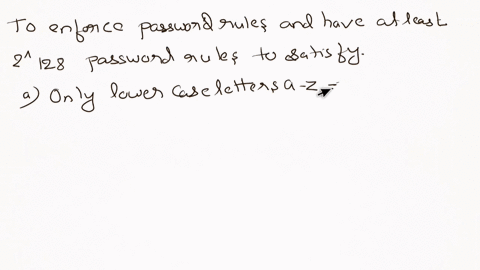 To enforce password rules and have at least
2^128 password rules to satisfy.
a) Only lower case letters a-z =